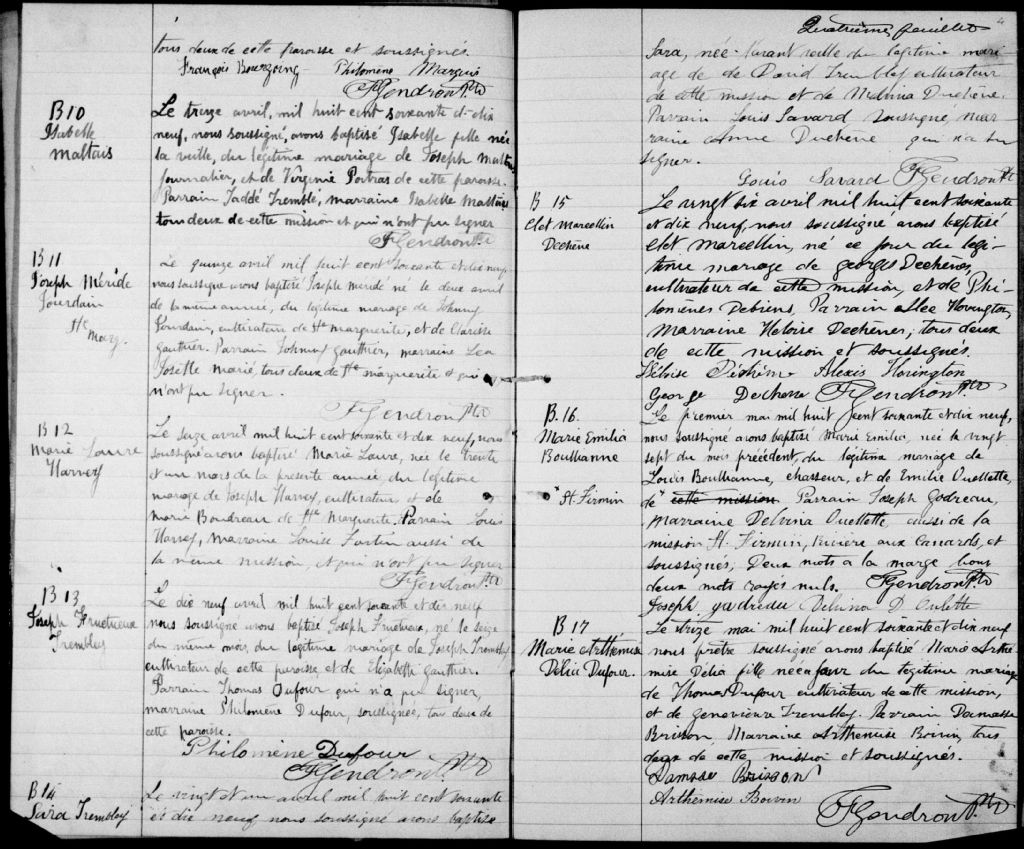 tous deux de cette paroisse et soussignés
François Bourgoing Philomène Marquis
FGendron Ptre
B 10
Isabelle
Maltais
Le treize avril, mil huit cent soixante et dix
neuf, nous soussigné, avons baptisé Isabelle fille née
la veille, du légitime mariage de Joseph Maltais
journalier, et de Virginie Poitras de cette paroisse.
Parrain Taddé Tremblé, marraine Isabelle Maltais
tous deux de cette mission et qui n'ont pu signer
FGendron Ptre
B 11
Joseph Méridé
Jourdain
Ste
Marg.
Le quinze avril mil huit cent soixante et dix neuf,
nous soussigné avons baptisé Joseph Méridé né le deux avril
de la même année, du légitime mariage de Johnny
Jourdain, cultivateur de Ste Marguerite, et de Clarisse
Gauthier. Parrain Johnny Gauthier, marraine Lea
Josette Marie, tous deux de Ste Marguerite et qui
n'ont pu signer.
FGendron Ptre
B 12
Marie Laure
Harvey
Le seize avril mil huit cent soixante et dix neuf, nous
soussigné avons baptisé Marie Laure, née le trente
et un mars de la présente année, du légitime
mariage de Joseph Harvey, cultivateur et de
Marie Boudreau de Ste Marguerite, Parrain Louis
Harvey, Marraine Louise Fortin aussi de
la même mission, et qui n'ont pu signer
FGendron Ptre
B 13
Joseph Fructueux
Tremblay
Le dix neuf avril mil huit cent soixante et dix neuf
nous soussigné avons baptisé Joseph Fructueux, né le seize
du même mois du légitime mariage de Joseph Tremblay
cultivateur de cette paroisse et de Elizabeth Gauthier.
Parrain Thomas Dufour qui n'a pu signer,
marraine Philomène Dufour, soussignée, tous deux de
cette paroisse.
Philomène Dufour
FGendron Ptre
B 14
Sara Tremblay
Le vingt et un avril mil huit cent soixante
et dix neuf nous soussigné avons baptisé
Quatrième feuillet 4
Sara, née durant veille du légitime mari-
age de de David Tremblay cultivateur
de cette mission et de Malvina Duchêne.
Parrain Louis Savard soussigné, mar-
raine Anne Duchêne qui n'a su
signer.
Louis Savard FGendron Ptre
B 15
Clet Marcellin
Dechêne
Le vingt six avril mil huit cent soixante
et dix neuf, nous soussigné avons baptisé
Clet Marcellin, né ce jour du légi-
time mariage de Georges Dechênes,
cultivateur de cette mission, et de Phi-
lomènes Debiens, Parrain Alec Hovington,
Marraine Heloise Dechenes, tous deux
de cette mission et soussignés.
Héloise Dechène Alexis Hovington
George Dechene FGendron Ptre
B. 16
Marie Emilia
Boulianne
" St. Firmin
Le premier mai mil huit cent soixante et dix neuf,
nous soussigné avons baptisé Marie Emilia, née le vingt
sept du mois précédent, du légitime mariage de
Louis Boulianne, chasseur, et de Emilie Ouellette,
de " cette mission. Parrain Joseph Godreau,
Marraine Delvina Ouellette aussi de la
mission St. Firmin, rivière aux Canards, et
soussignés, Deux mots à la marge bons
deux mots rayés nuls. FGendron Ptre
Joseph Delvina D. Oulette
B 17
Marie Arthémise
Délia Dufour.
Le treize mai mil huit cent soixante et dix neuf
nous prêtre soussigné avons baptisé Marie Arthé-
mise Délia fille née ce jour du légitime mariage
de Thomas Dufour cultivateur de cette mission,
et de Genevieve Tremblay. Parrain Damasse
Brisson Marraine Arthémise Boivin, tous
deux de cette mission et soussignés.
Damase Brisson
Arthémise Boivin
FGendron Ptre